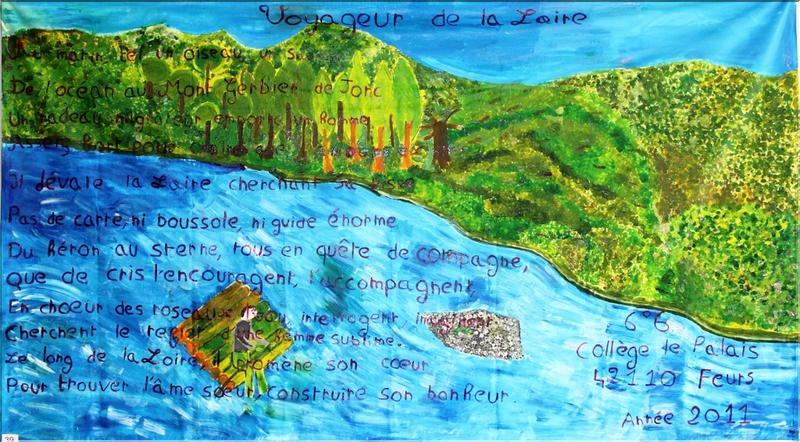 Voyageur de la Loire
Un matin, tel un oiseau, un
De l'océan au Mont Gerbier de Jonc
Un radeau migrateur emporte un homme
Assez fort pour
Il dévale la Loire cherchant sa
Pas de carte, ni boussole, ni guide énorme
Du héron au sterne, tous en quête de compagne,
Que de cris l'encouragent, l'accompagnent
En choeur des roseaux interrogent imaginent
Cherchent le reflet d'une femme sublime.
Le long de la Loire, il promène son coeur
Pour trouver l'âme soeur, construire son bonheur.
6°6
Collège le Palais
42110 Feurs
Année 2011
39